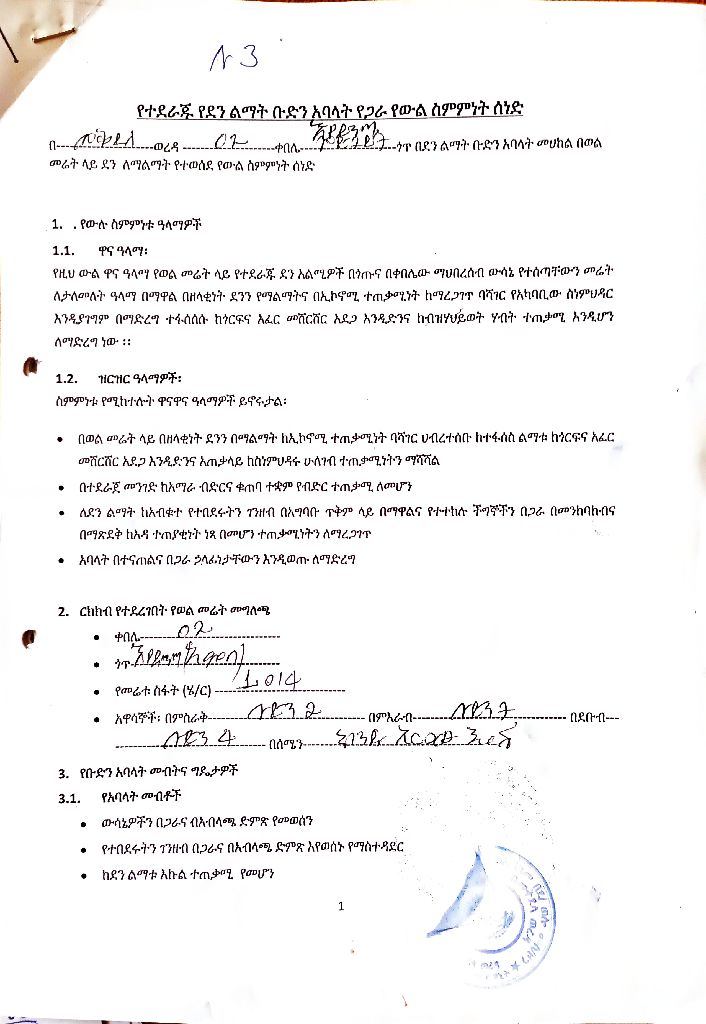 የተደራጁ የደን ልማት ቡድን አባላት የጋራ የውል ስምምነት ሰነድ
በ---ወረዳ---02---ቀበሌ---ጎጥ በደን ልማት ቡድን አባላት መሀከል በወል
መሬት ላይ ደን ለማልማት የተወሰደ የውል ስምምነት ሰነድ
1. . የውሉ ስምምነቱ ዓላማዎች
1.1. ዋና ዓላማ፡
የዚህ ውል ዋና ዓላማ የወል መሬት ላይ የተደራጁ ደን አልሚዎች በጎጡና በቀበሌው ማህበረሰብ ውሳኔ የተሰጣቸውን መሬት
ለታለመለት ዓላማ በማዋል በዘላቂነት ደንን የማልማትና በኢኮኖሚ ተጠቃሚነት ከማረጋገጥ ባሻገር የአካባቢው ስነምህዳር
እንዲያገግም በማድረግ ተፋሰሰሱ ከጎርፍና አፈር መሸርሸር አደጋ እንዲድንና ከብዝሃህይወት ሃብት ተጠቃሚ እንዲሆን
ለማድረግ ነው ፡፡
1.2. ዝርዝር ዓላማዎች፡
ስምምነቱ የሚከተሉት ዋናዋና ዓላማዎች ይኖሩታል፡
• በወል መሬት ላይ በዘላቂነት ደንን በማልማት ከኢኮኖሚ ተጠቃሚነት ባሻገር ህብረተሰቡ ከተፋሰስ ልማቱ ከጎርፍና አፈር
መሸርሸር አደጋ እንዲድንና አጠቃላይ ከስነምህዳሩ ሁለገብ ተጠቃሚነትን ማሻሻል
• በተደራጀ መንገድ ከአማራ ብድርና ቁጠባ ተቋም የብድር ተጠቃሚ ለመሆን
• ለደን ልማት ከአብቁተ የተበደሩትን ገንዘብ በአግባቡ ጥቅም ላይ በማዋልና የተተከሉ ችግኞችን በጋራ በመንከባከብና
በማጽደቅ ከእዳ ተጠያቂነት ነጻ በመሆን ተጠቃሚነትን ለማረጋገጥ
• አባላት በተናጠልና በጋራ ኃላፊነታቸውን እንዲወጡ ለማድረግ
2. ርክክብ የተደረገበት የወል መሬት መግለጫ
• ቀበሌ---02---
• ጎጥ---
• የመሬቱ ስፋት (ሄ/ር) ---1.014---
• አዋሳኞች፡ በምስራቅ--- በምእራብ--- በደቡብ---
--- በሰሜን---
3. የቡድን አባላት መብትና ግዴታዎች
3.1. የአባላት መብቶች
• ውሳኔዎችን በጋራና ብአብላጫ ድምጽ የመወሰን
• የተበደሩትን ገንዘብ በጋራና በአብላጫ ድምጽ እየወሰኑ የማስተዳደር
• ከደን ልማቱ እኩል ተጠቃሚ የመሆን
1